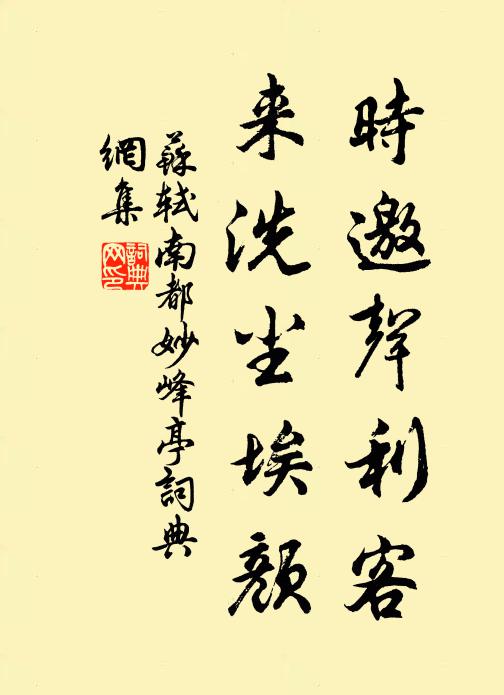 時邀聲利客
来洗尘埃顔
蘇軾南都妙峰亭詞典
網集
詞典
网印